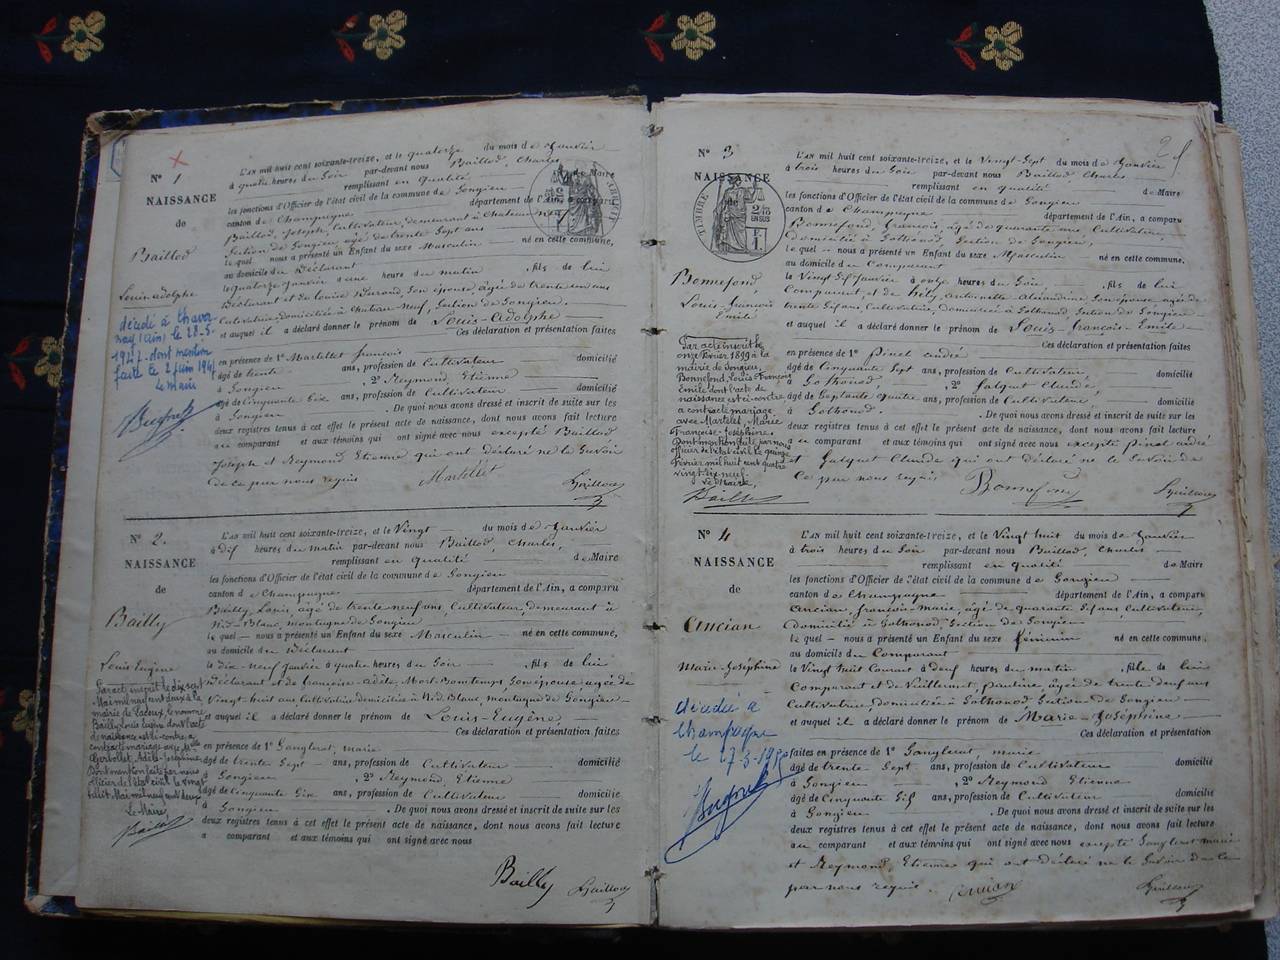 N° 1
NAISSANCE
de
Baillod
Louis adolphe
décédé à Chava
nay (Ain) le 28-5-
1947. dont mention
faite le 2 juin 1947
le Maire
L'AN mil huit cent soixante-treize, et le quatorze du mois de Janvier
à quatre heures du Soir par-devant nous Baillod, Charles
remplissant en qualité de Maire
les fonctions d'Officier de l'état civil de la commune de Songieu
canton de Champagne département de l'Ain, a comparu
Baillod, Joseph, Cultivateur, demeurant à Chateauneuf
Section de Songieu, agé de trente Sept ans
le quel nous a présenté un Enfant du sexe Masculin né en cette commune,
au domicile du Déclarant
le quatorze Janvier à une heure du matin, fils de lui
Déclarant et de Louise Burond, Son épouse, agée de trente un ans
Cultivatrice domiciliée à Chateau-neuf, Section de Songieu.
et auquel il a déclaré donner le prénom de Louis-Adolphe
Ces déclaration et présentation faites
en présence de 1° Martellet françois domicilié
âgé de trente ans, profession de Cultivateur
à Songieu, 2° Reymond Etienne domicilié
âgé de Cinquante Six ans, profession de Cultivateur
à Songieu. De quoi nous avons dressé et inscrit de suite sur les
deux registres tenus à cet effet le présent acte de naissance, dont nous avons fait lecture
au comparant et aux témoins qui ont signé avec nous excepté Baillod
Joseph et Reymond Etienne qui ont déclaré ne le Savoir
de ce par nous requis
Martellet Baillod
N° 2.
NAISSANCE
de
Bailly
Louis Eugène
Par acte inscrit le dix sept
Mai mil neuf cent deux à la
mairie de Lacoux, le nommé
Bailly Louis Eugène dont l'acte
de naissance est ci-contre a
contracté mariage avec Melle
Adèle Joséphine
Dont mention faite par nous
officier de l'état civil le vingt
Mai mil neuf cent deux
Le Maire,
Bailly
L'AN mil huit cent soixante-treize, et le Vingt du mois de Janvier
à dix heures du matin par-devant nous Baillod, Charles,
remplissant en qualité de Maire
les fonctions d'Officier de l'état civil de la commune de Songieu
canton de Champagne département de l'Ain, a comparu
Bailly Louis, agé de trente neuf ans, Cultivateur, demeurant à
Nid-Blanc, montagne de Songieu
le quel nous a présenté un Enfant du sexe Masculin né en cette commune,
au domicile du Déclarant
le dix neuf Janvier à quatre heures du Soir, fils de lui
Déclarant et de françoise-adèle Mort-Bontemps Son épouse, agée de
Vingt-huit ans, Cultivatrice domiciliée à Nid Blanc, montagne de Songieu
et auquel il a déclaré donner le prénom de Louis-Eugène,
Ces déclaration et présentation faites
en présence de 1° Ganglerat, marie
âgé de trente Sept ans, profession de Cultivateur domicilié
à Songieu, 2° Reymond, Etienne
âgé de Cinquante Six ans, profession de Cultivateur domicilié
à Songieu. De quoi nous avons dressé et inscrit de suite sur les
deux registres tenus à cet effet le présent acte de naissance, dont nous avons fait lecture
a comparant et aux témoins qui ont signé avec nous
Bailly Baillod
N° 3
NAISSANCE
de
TIMBRE
Bonnefond,
Louis-françois
Emile
Par acte inscrit le
onze Février 1899 à la
mairie de Songieu,
Bonnefond, Louis-François
Emile dont l'acte de
naissance est ci-contre,
a contracté mariage
avec Martelet, Marie
Françoise-Joséphine
Dont mention faite par nous
officier de l'état civil le quinze
Février mil huit cent quatre
vingt-dix-neuf
Le Maire,
Bailly
L'AN mil huit cent soixante-treize, et le Vingt-Sept du mois de Janvier
à trois heures du Soir par-devant nous Baillod Charles
remplissant en qualité de Maire
les fonctions d'Officier de l'état civil de la commune de Songieu
canton de Champagne département de l'Ain, a comparu
Bonnefond, françois, agé de quarante ans, Cultivateur,
domicilié à Gothonod, Section de Songieu,
le quel nous a présenté un Enfant du sexe Masculin né en cette commune,
au domicile du Comparant
le Vingt Six Janvier à onze heures du Soir, fils de lui
Comparant, et de Héby, Antoinette Alexandrine Son épouse, agée de
trente Six ans, Cultivatrice, Domiciliée à Gothonod, Section de Songieu
et auquel il a déclaré donner le prénom de Louis-françois-Emile
Ces déclaration et présentation faites
en présence de 1° Pinel andré
âgé de Cinquante Sept ans, profession de Cultivateur, domicilié
à Gothonod, 2° Falquet Claude,
âgé de Septante quatre ans, profession de Cultivateur, domicilié
à Gothonod. De quoi nous avons dressé et inscrit de suite sur les
deux registres tenus à cet effet le présent acte de naissance, dont nous avons fait lecture
au comparant et aux témoins qui ont signé avec nous excepté Pinel andré
et Falquet Claude qui ont déclaré ne le Savoir de
Ce par nous requis
Bonnefond Baillod
N° 4
NAISSANCE
de
Ancian
Marie-Joséphine
décédée à
Champagne
L'AN mil huit cent soixante-treize, et le Vingt huit du mois de Janvier
à trois heures du Soir par-devant nous Baillod, Charles
remplissant en qualité de Maire
les fonctions d'Officier de l'état civil de la commune de Songieu
canton de Champagne département de l'Ain, a comparu
Ancian, françois-marie, agé de quarante Six ans, Cultivateur,
Domicilié à Gothonod, Section de Songieu
le quel nous a présenté un Enfant du sexe féminin né en cette commune,
au domicile du Comparant
le Vingt huit Courant à Deux heures du matin, fille de lui
Comparant et de Vuillermet, Pauline agée de trente deux ans
Cultivatrice, Domiciliée à Gothonod Section de Songieu
et auquel il a déclaré donner le prénom de Marie-Joséphine
Ces déclaration et présentation
faites en présence de 1° Ganglerat marie
âgé de trente Sept ans, profession de Cultivateur domicilié
à Songieu, 2° Reymond Etienne
âgé de Cinquante Six ans, profession de Cultivateur domicilié
à Songieu. De quoi nous avons dressé et inscrit de suite sur les
deux registres tenus à cet effet le présent acte de naissance, dont nous avons fait lecture
au comparant et aux témoins qui ont signé avec nous excepté Ganglerat marie
et Reymond, Etienne, qui ont déclaré ne le Savoir de ce
par nous requis. Ancian Baillod